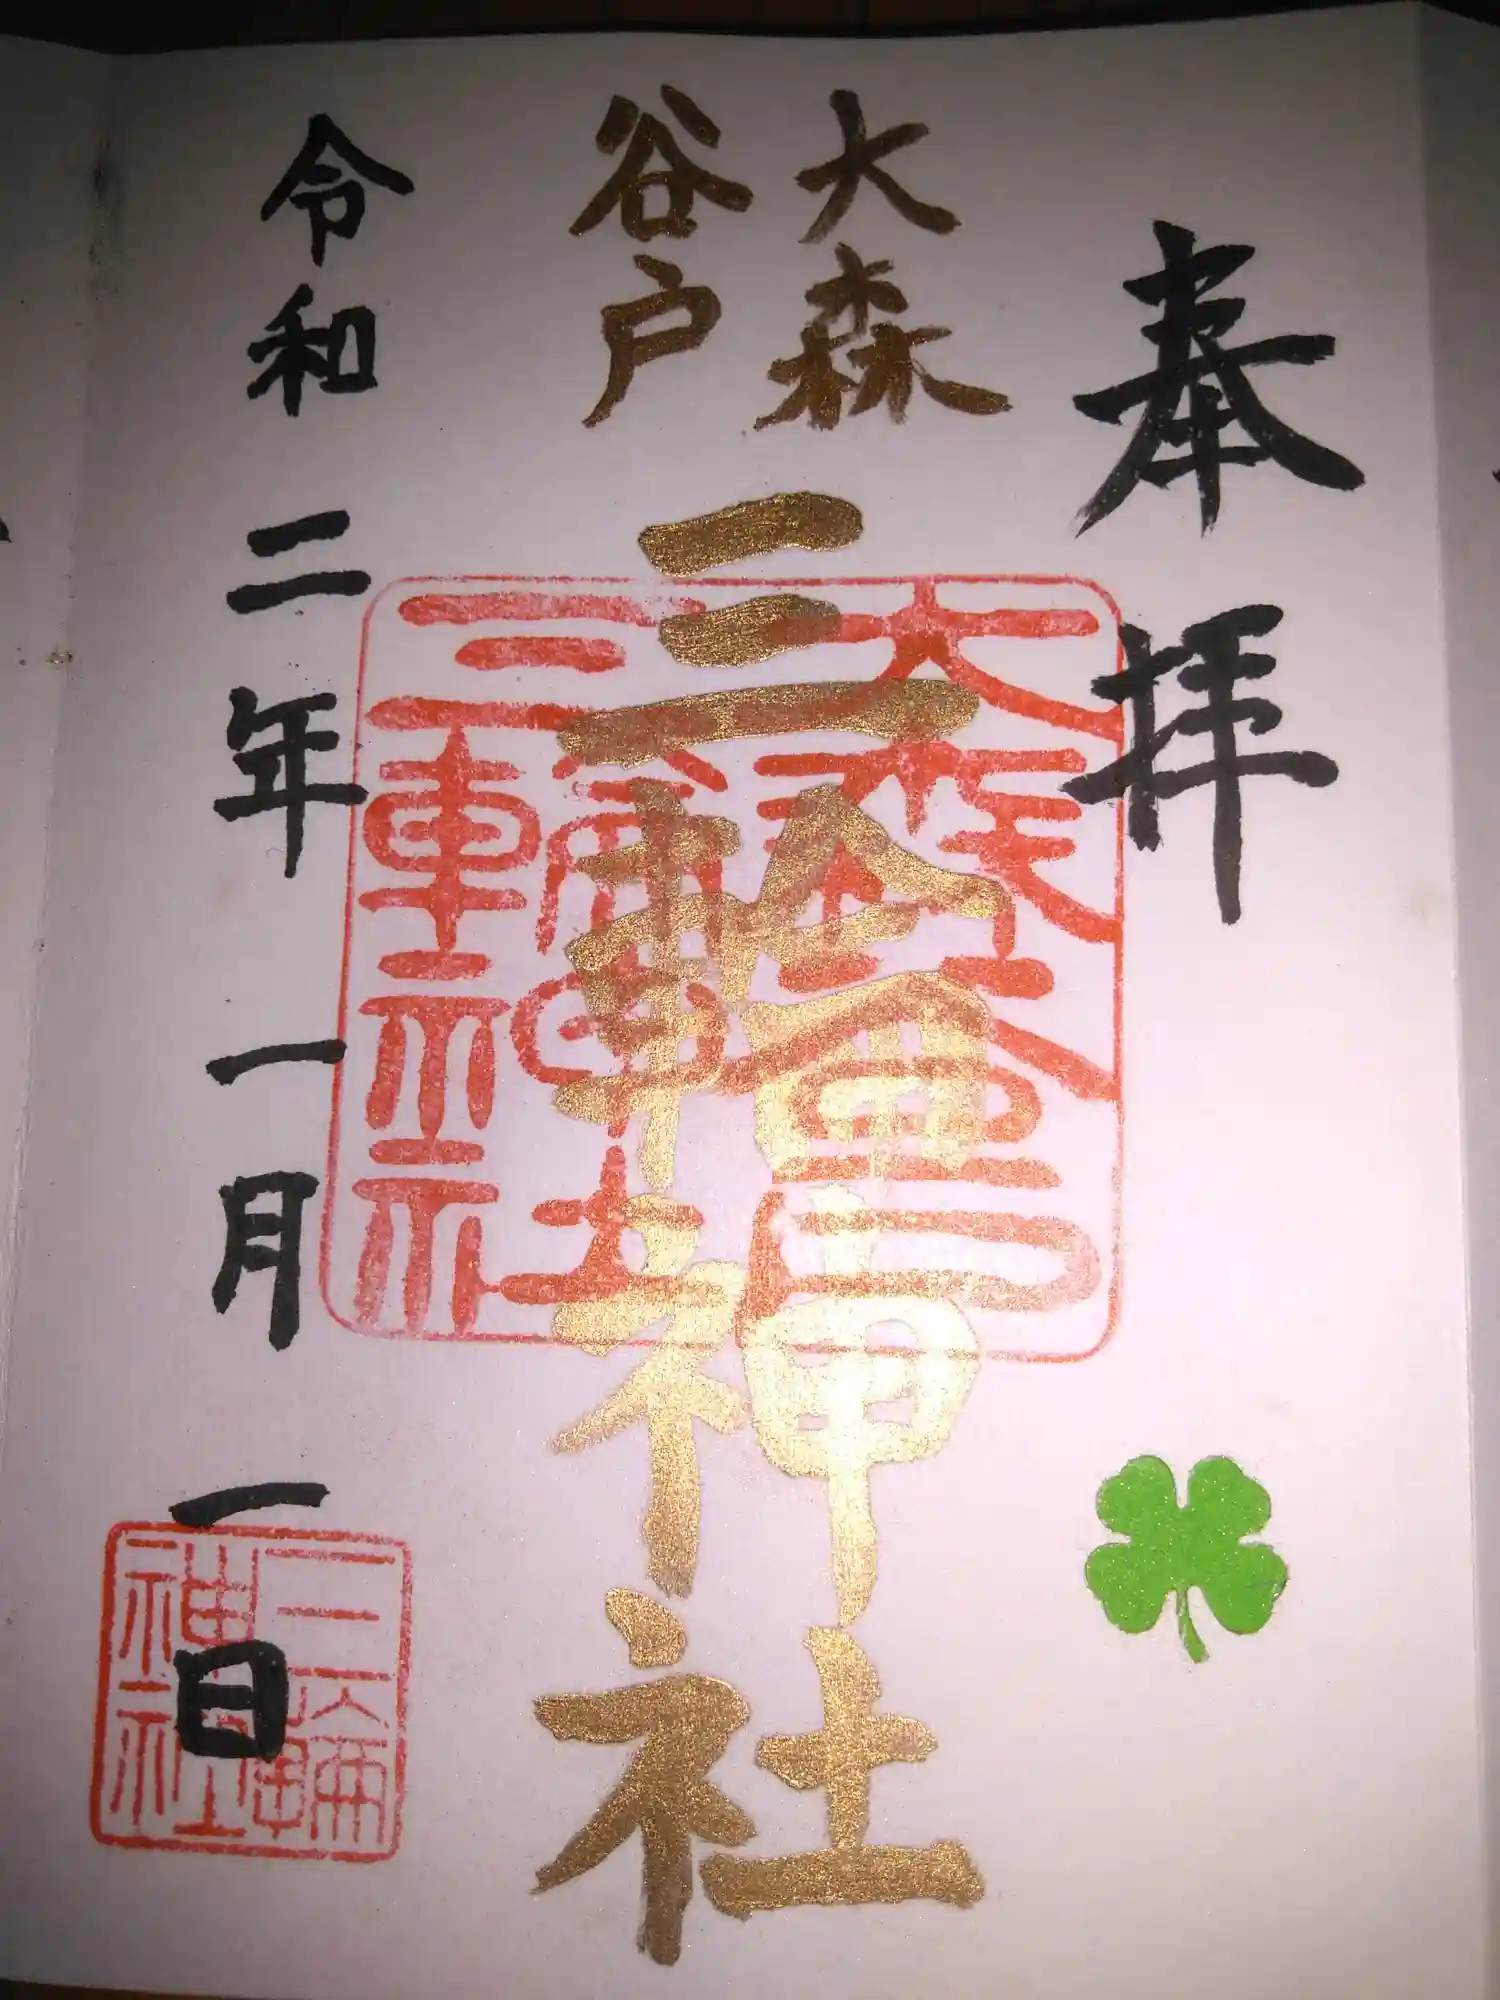 奉拝
大森
谷戸
三輪神社
令和二年一月一日
大森谷戸三輪神社
三輪神社